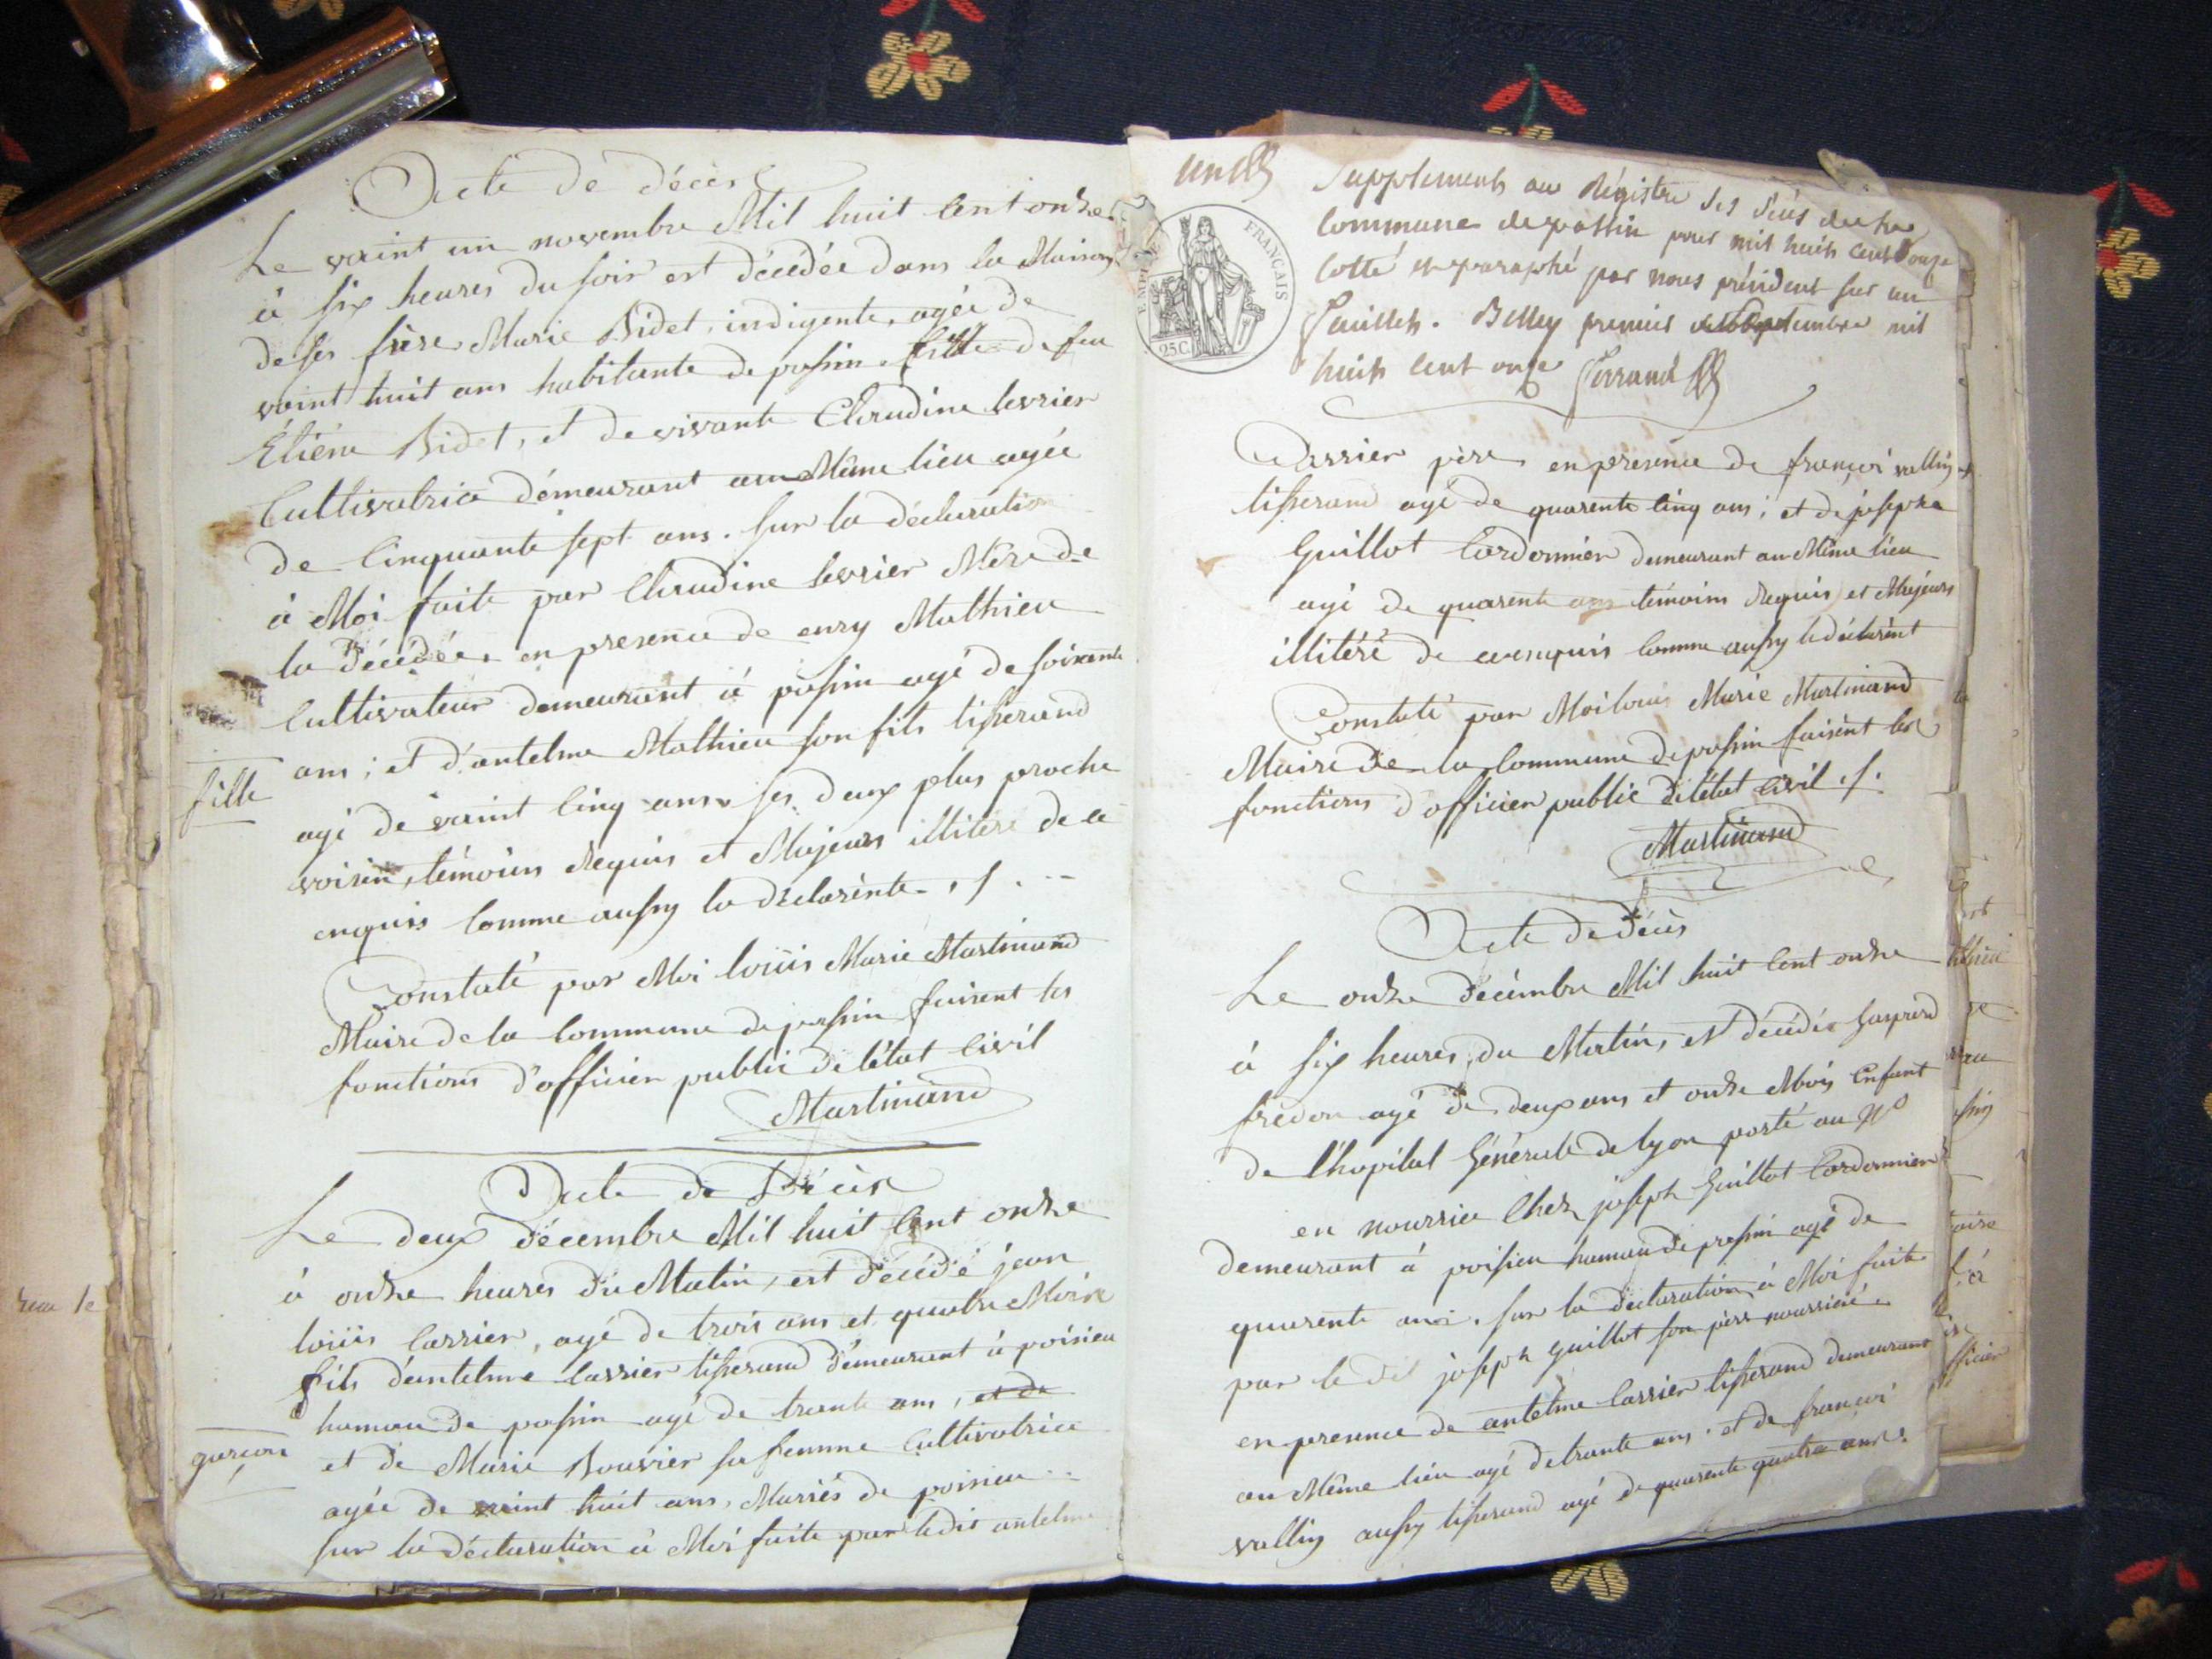 Acte de décès
Le vaint un novembre Mil huit cent onze
à six heures du soir est décédée dans la Maison
de ses frère Marie Bidet, indigente, agée de
vaint huit ans habitante de passin, fille de feu
Étiéne Bidet, et de vivante Claudine levrier
Cultivatrice démeurant au Même lieu agée
de Cinquante sept ans. sur la déclaration
à Moi faite par Claudine levrier Mère de
la décédée, en presence de enry Mathieu
Cultivateur demeurant à passin agé de soixante
ans ; et d'antelme Mathieu son fils tisserand
agé de vaint cinq ans ses deux plus proche
voisin, témoins Requis et Majeurs illitéré de ce
enquis comme aussy la déclarènte ./. --
Constaté par Moi loüis Marie Martinand
Maire de la Commune de passin faisent les
fonctions d'officier public de l'état civil
Martinand
fille
Acte de Décès
Le deux décembre Mil huit cent onze
à onze heures du Matin, est décédé jean
loüis Carrier, agé de trois ans et quatre Mois
fils d'antelme Carrier tisserand démeurant à poisieu
hamau de passin agé de trante ans, et de
et de Marie Bouvier sa femme Cultivatrice
agée de vaint huit ans, Mariés de poisieu --
sur la déclaration à Moi faite par ledit antelme
garçon
un
EMPIRE FRANÇAIS
25 C.
Supplement au Régistre des décés de la
Commune de passin pour mil huit cent onze
cotté et paraphé par nous président sur un
feuillet. Belley premier septembre mil
huit cent onze
Carrier père en presence de françoi vallin
tisserand agé de quarente cinq ans ; et de joseph
Guillot Cordonnier demeurant au Même lieu
agé de quarente ans témoins Requis et Majeurs
illitéré de ce enquis comme aussy le déclarent
Constaté par Moi louis Marie Martinand
Maire de la Commune de passin faisent les
fonctions d'officier public de l'état civil ./.
Martinand
Acte de Décès
Le onze décembre Mil huit cent onze
à six heures du Matin, est décédé Gaspard
fredon agé de deux ans et onze Mois Enfant
de l'hopital Générale de lyon porté au N°
en nourrice Chez joseph Guillot Cordonnier
demeurant à poisieu hamau de passin agé de
quarente ans. sur la déclaration à Moi faite
par le dit joseph guillot son père nourricié
en presence de antelme Carrier tisserand demeurant
au Même lieu agé de trante ans. et de françoi
vallin aussy tisserand agé de quarente quatre ans.